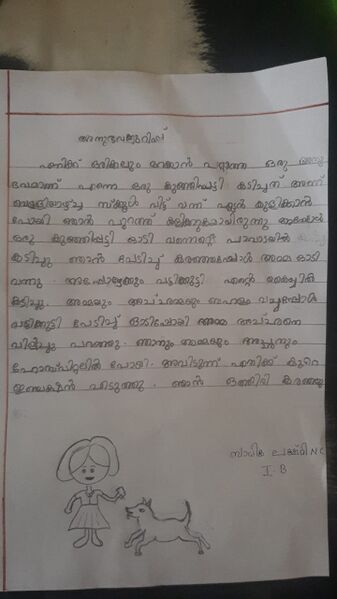 അനുഭവക്കുറിപ്പ്
എനിക്ക് ഒരിക്കലും മറക്കാൻ പറ്റാത്ത ഒരു അനു
ഭവമാണ് എന്നെ ഒരു കുഞ്ഞിപ്പട്ടി കടിച്ചത് അന്ന്
വെള്ളിയാഴ്ച്ച സ്കൂൾ വിട്ട് വന്ന് ഏട്ടൻ കുളിക്കാൻ
പോയി ഞാൻ പുറത്ത് കളിക്കുകയായിരുന്നു അപ്പോൾ
ഒരു കുഞ്ഞിപ്പട്ടി ഓടി വന്നെന്റെ പാവാടയിൽ
കടിച്ചു ഞാൻ പേടിച്ച് കരഞ്ഞപ്പോൾ അമ്മ ഓടി
വന്നു. അപ്പോഴേക്കും പട്ടിക്കുട്ടി എന്റെ കൈയ്യിൽ
കടിച്ചു. അമ്മയും അച്ഛമ്മയും ബഹളം വച്ചപ്പോൾ
പട്ടിക്കുട്ടി പേടിച്ച് ഓടിപ്പോയി അമ്മ അച്ഛനെ
വിളിച്ചു പറഞ്ഞു. ഞാനും അമ്മയും അച്ഛനും
ഹോസ്പിറ്റലിൽ പോയി. അവിടുന്ന് എനിക്ക് കുറെ
ഇഞ്ചക്ഷൻ വെടുത്തു. ഞാൻ ഒത്തിരി കരഞ്ഞു
ലക്ഷ്മി N C
I. B